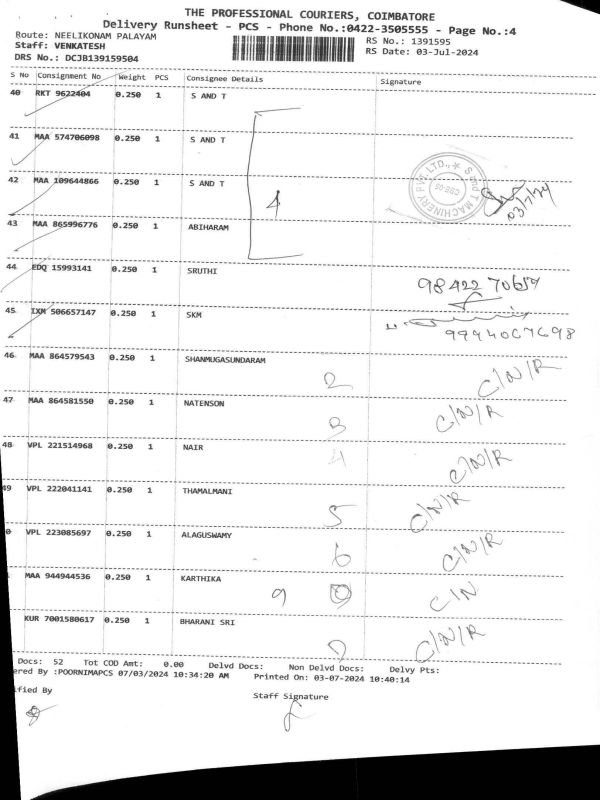 THE PROFESSIONAL COURIERS, COIMBATORE
Delivery Runsheet - PCS - Phone No.:0422-3505555 - Page No.:4
Route: NEELIKONAM PALAYAM RS No.: 1391595
Staff: VENKATESH RS Date: 03-Jul-2024
DRS No.: DCJB139159504
S No Consignment No Weight PCS Consignee Details Signature
40 RKT 9622404 0.250 1 S AND T
41 MAA 574706098 0.250 1 S AND T
42 MAA 109644866 0.250 1 S AND T 4 03/7/24
43 MAA 865996776 0.250 1 ABIHARAM
44 EDQ 15993141 0.250 1 SRUTHI 98422 70657
45 IXM 506657147 0.250 1 SKM 9944067698
46 MAA 864579543 0.250 1 SHANMUGASUNDARAM 2 C/N/R
47 MAA 864581550 0.250 1 NATENSON 3 C/N/R
48 VPL 221514968 0.250 1 NAIR 4 C/N/R
49 VPL 222041141 0.250 1 THAMALMANI 5 C/N/R
0 VPL 223085697 0.250 1 ALAGUSWAMY 6 C/N/R
MAA 944944536 0.250 1 KARTHIKA 9 C/N
KUR 7001580617 0.250 1 BHARANI SRI C/N/R
Docs: 52 Tot COD Amt: 0.00 Delvd Docs: Non Delvd Docs: Delvy Pts:
ered By :POORNIMAPCS 07/03/2024 10:34:20 AM Printed On: 03-07-2024 10:40:14
ified By Staff Signature